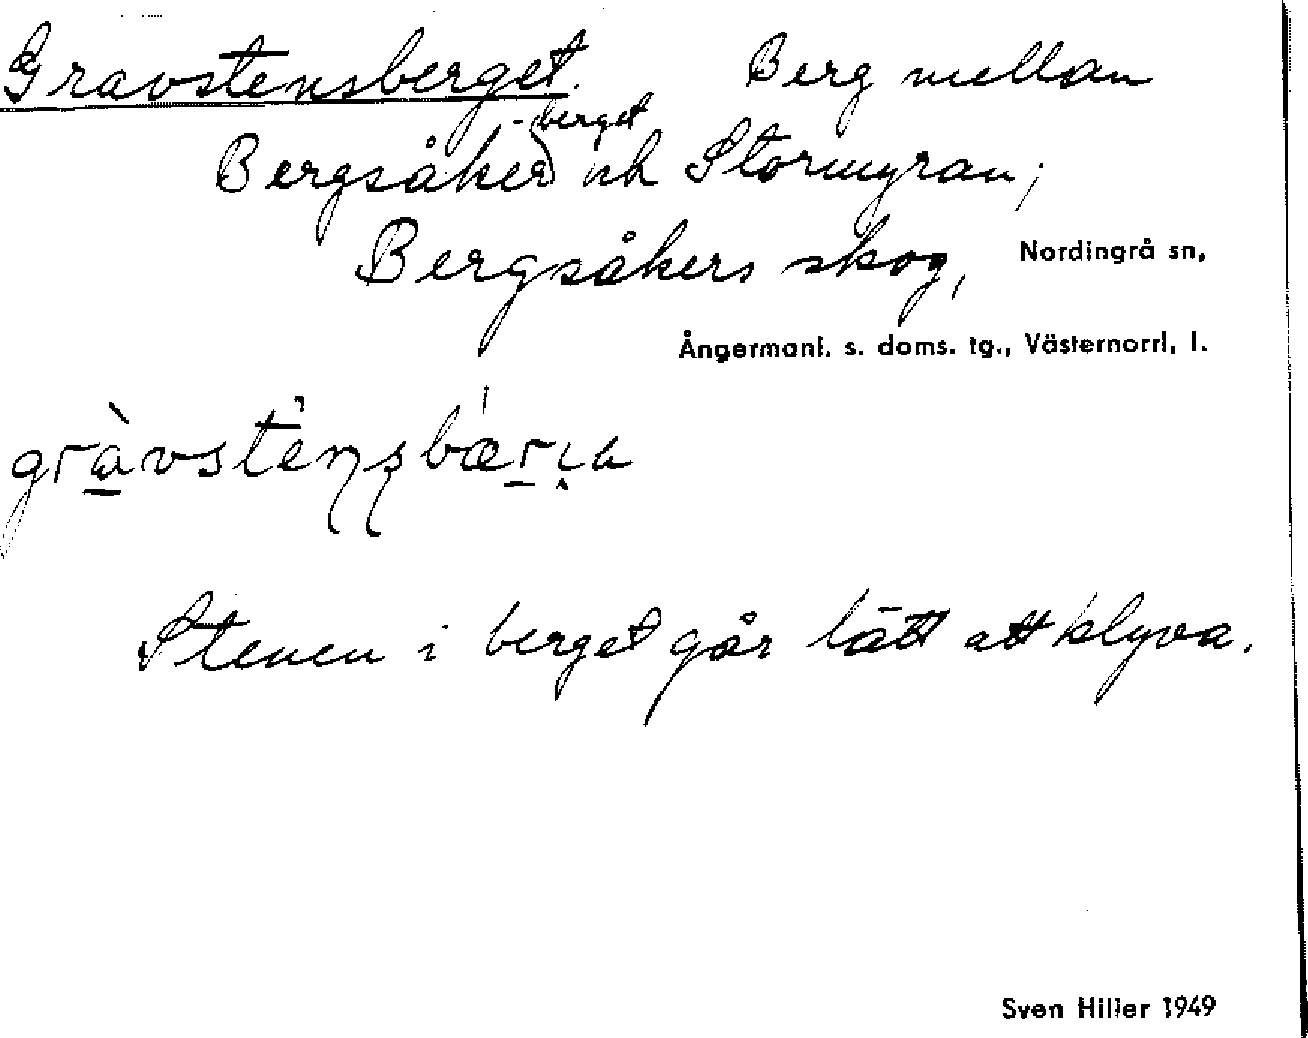 Gravstensberget. Berg mellan
-berget
Bergsåker och Stormyran;
Bergsåkers skog, Nordingrå sn,
Ångermanl. s. doms. tg., Västernorrl, l.
Stenen i berget går lätt att klyva.
Sven Hiller 1949